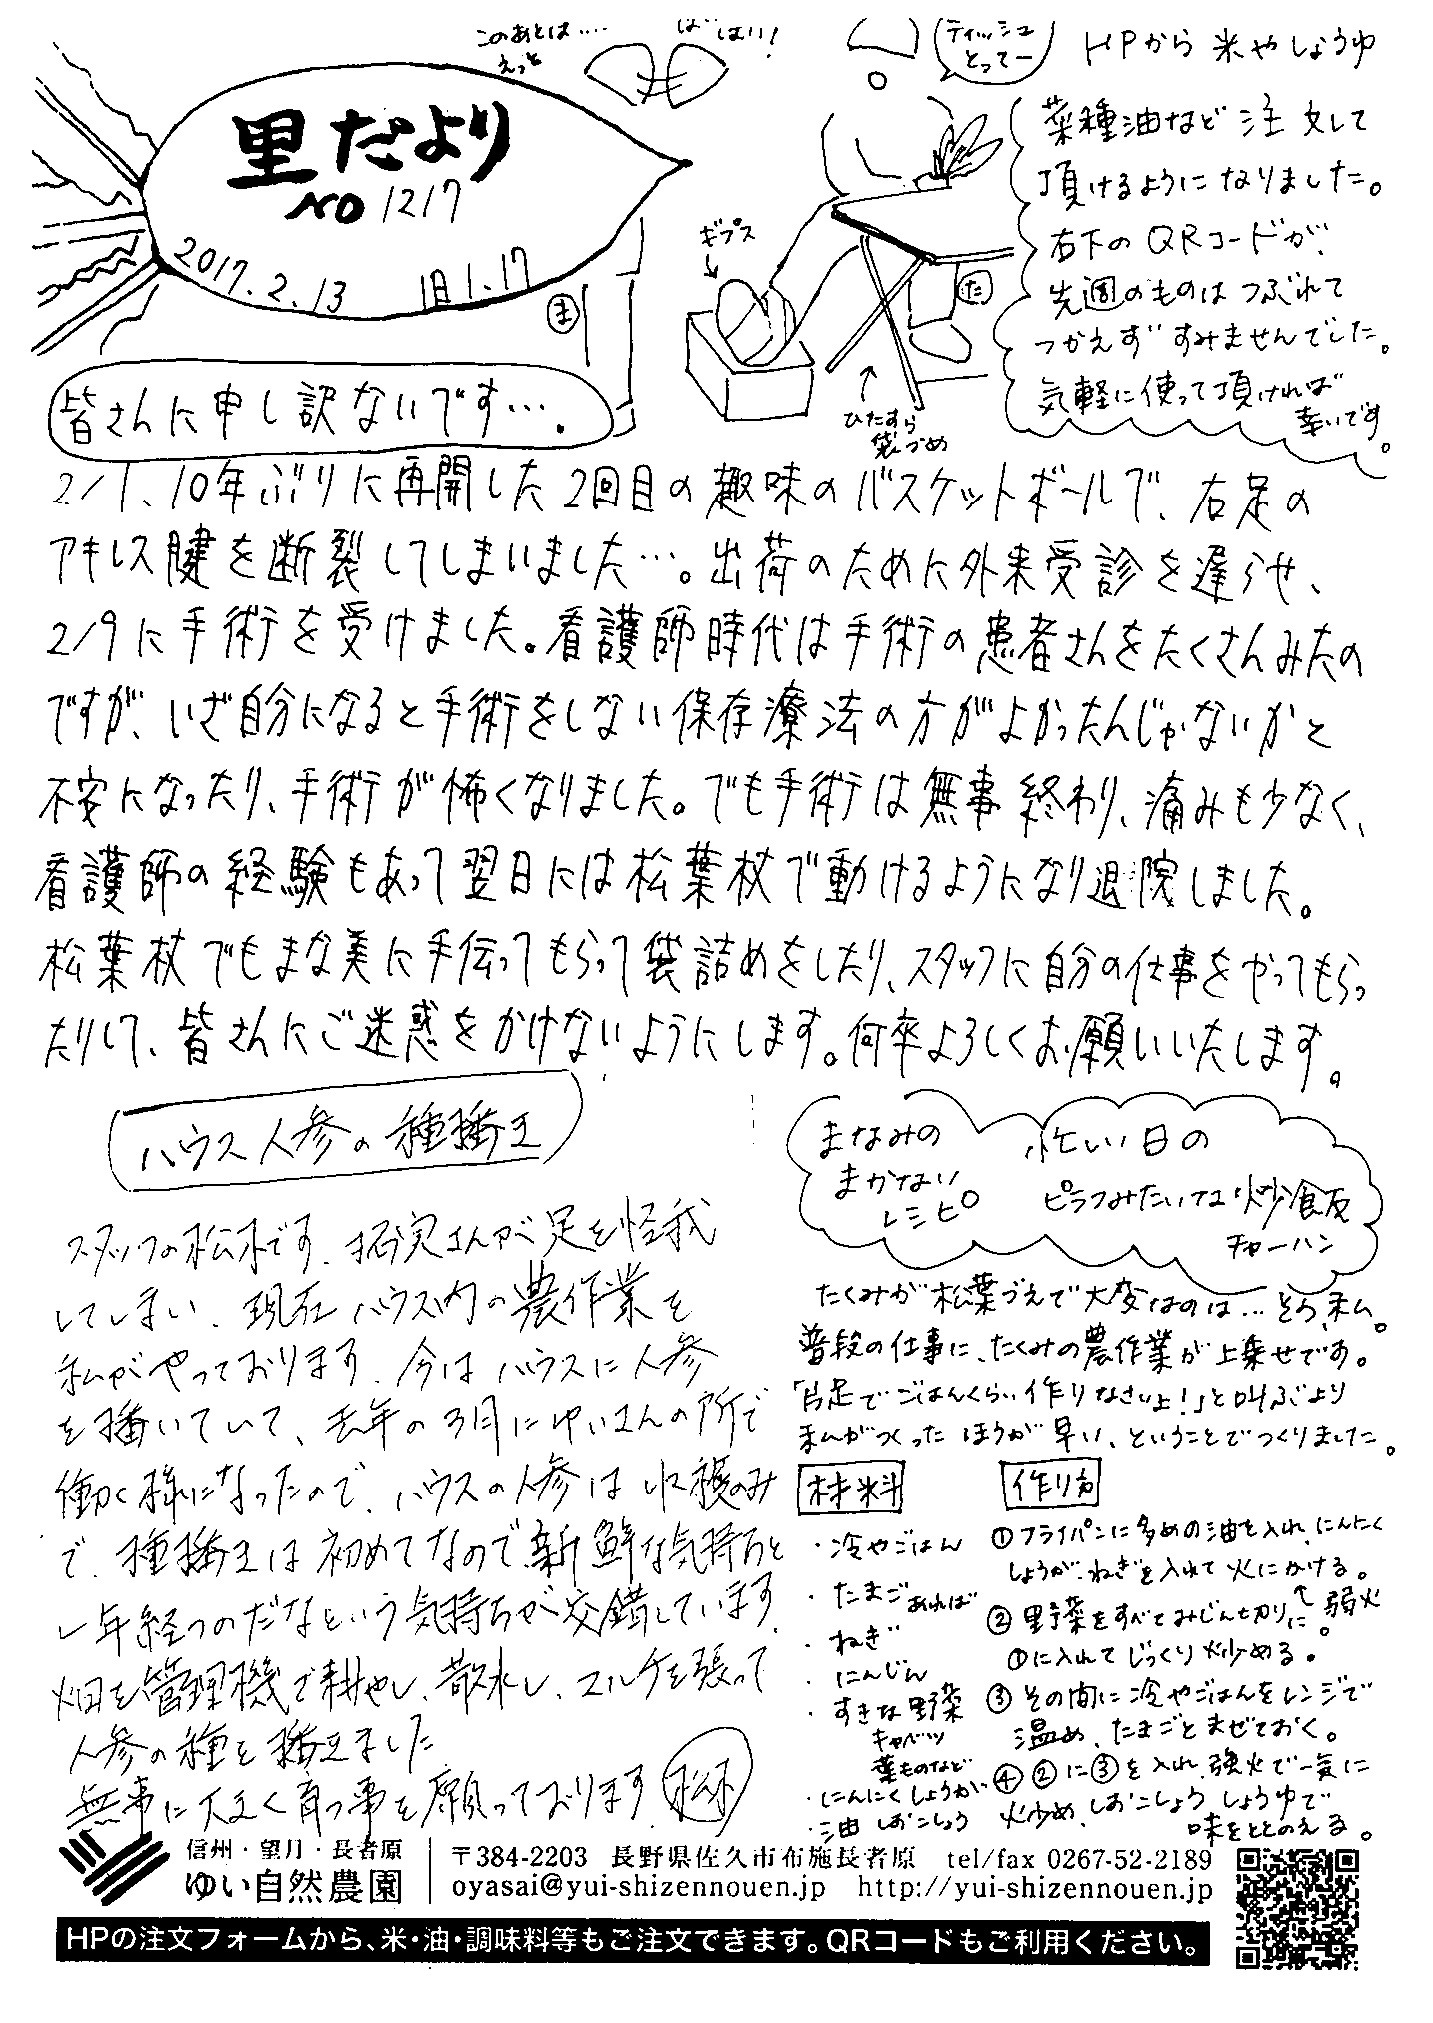 里だより
NO 1217
2017.2.13 旧1.17
このあとは‥‥
えっと
はいはい!
ティッシュ
とってー
ギプス
ま
た
ひたすら
袋づめ
HPから 米やしょうゆ
菜種油など 注文して
頂けるようになりました。
右下のQRコードが、
先週のものは つぶれて
つかえず すみませんでした。
気軽に使って頂ければ
幸いです。
皆さんに申し訳ないです…。
2/1、10年ぶりに再開した2回目の趣味のバスケットボールで、右足の
アキレス腱を断裂してしまいました…。出荷のために外来受診を遅らせ、
2/9に手術を受けました。看護師時代は手術の患者さんをたくさんみたの
ですが、いざ自分になると手術をしない保存療法の方がよかったんじゃないかと
不安になったり、手術が怖くなりました。でも手術は無事終わり、痛みも少なく、
看護師の経験もあって翌日には松葉杖で動けるようになり退院しました。
松葉杖でもまな美に手伝ってもらって袋詰めをしたり、スタッフに自分の仕事をやってもらっ
たりして、皆さんにご迷惑をかけないようにします。何卒よろしくお願いいたします。
ハウス人参の種播き
スタッフの松本です。拓実さんが足を怪我
してしまい、現在ハウス内の農作業を
私がやっております。今はハウスに人参
を播いていて、去年の3月にゆいさんの所で
働く様になったので、ハウスの人参は収穫のみ
で、種播きは初めてなので、新鮮な気持ちと
一年経つのだなという気持ちが交錯しています。
畑を管理機で耕やし、散水し、マルチを張って
人参の種を播きました
無事に大きく育つ事を願っております。松本
まなみの
まかない
レシピ
忙しい日の
ピラフみたいな炒飯
チャーハン
たくみが松葉づえで大変なのは…そう、私。
普段の仕事に、たくみの農作業が上乗せです。
「片足でごはんくらい作りなさいよ!」と叫ぶより
私がつくったほうが早い、ということでつくりました。
材料
・冷やごはん
・たまご あれば
・ねぎ
・にんじん
・すきな野菜
キャベツ
葉ものなど
・にんにくしょうが
・油 しおこしょう
作り方
①フライパンに多めの油を入れ、にんにく
しょうが、ねぎを入れて火にかける。
↑弱火
②野菜をすべてみじん切りに。
①に入れてじっくり炒める。
③その間に冷やごはんをレンジで
温め、たまごとまぜておく。
④②に③を入れ、強火で一気に
炒め、しおこしょう しょうゆで
味をととのえる。
信州・望月・長者原
ゆい自然農園
〒384-2203 長野県佐久市布施長者原 tel/fax 0267-52-2189
oyasai@yui-shizennouen.jp http://yui-shizennouen.jp
HPの注文フォームから、米・油・調味料等もご注文できます。QRコードもご利用ください。